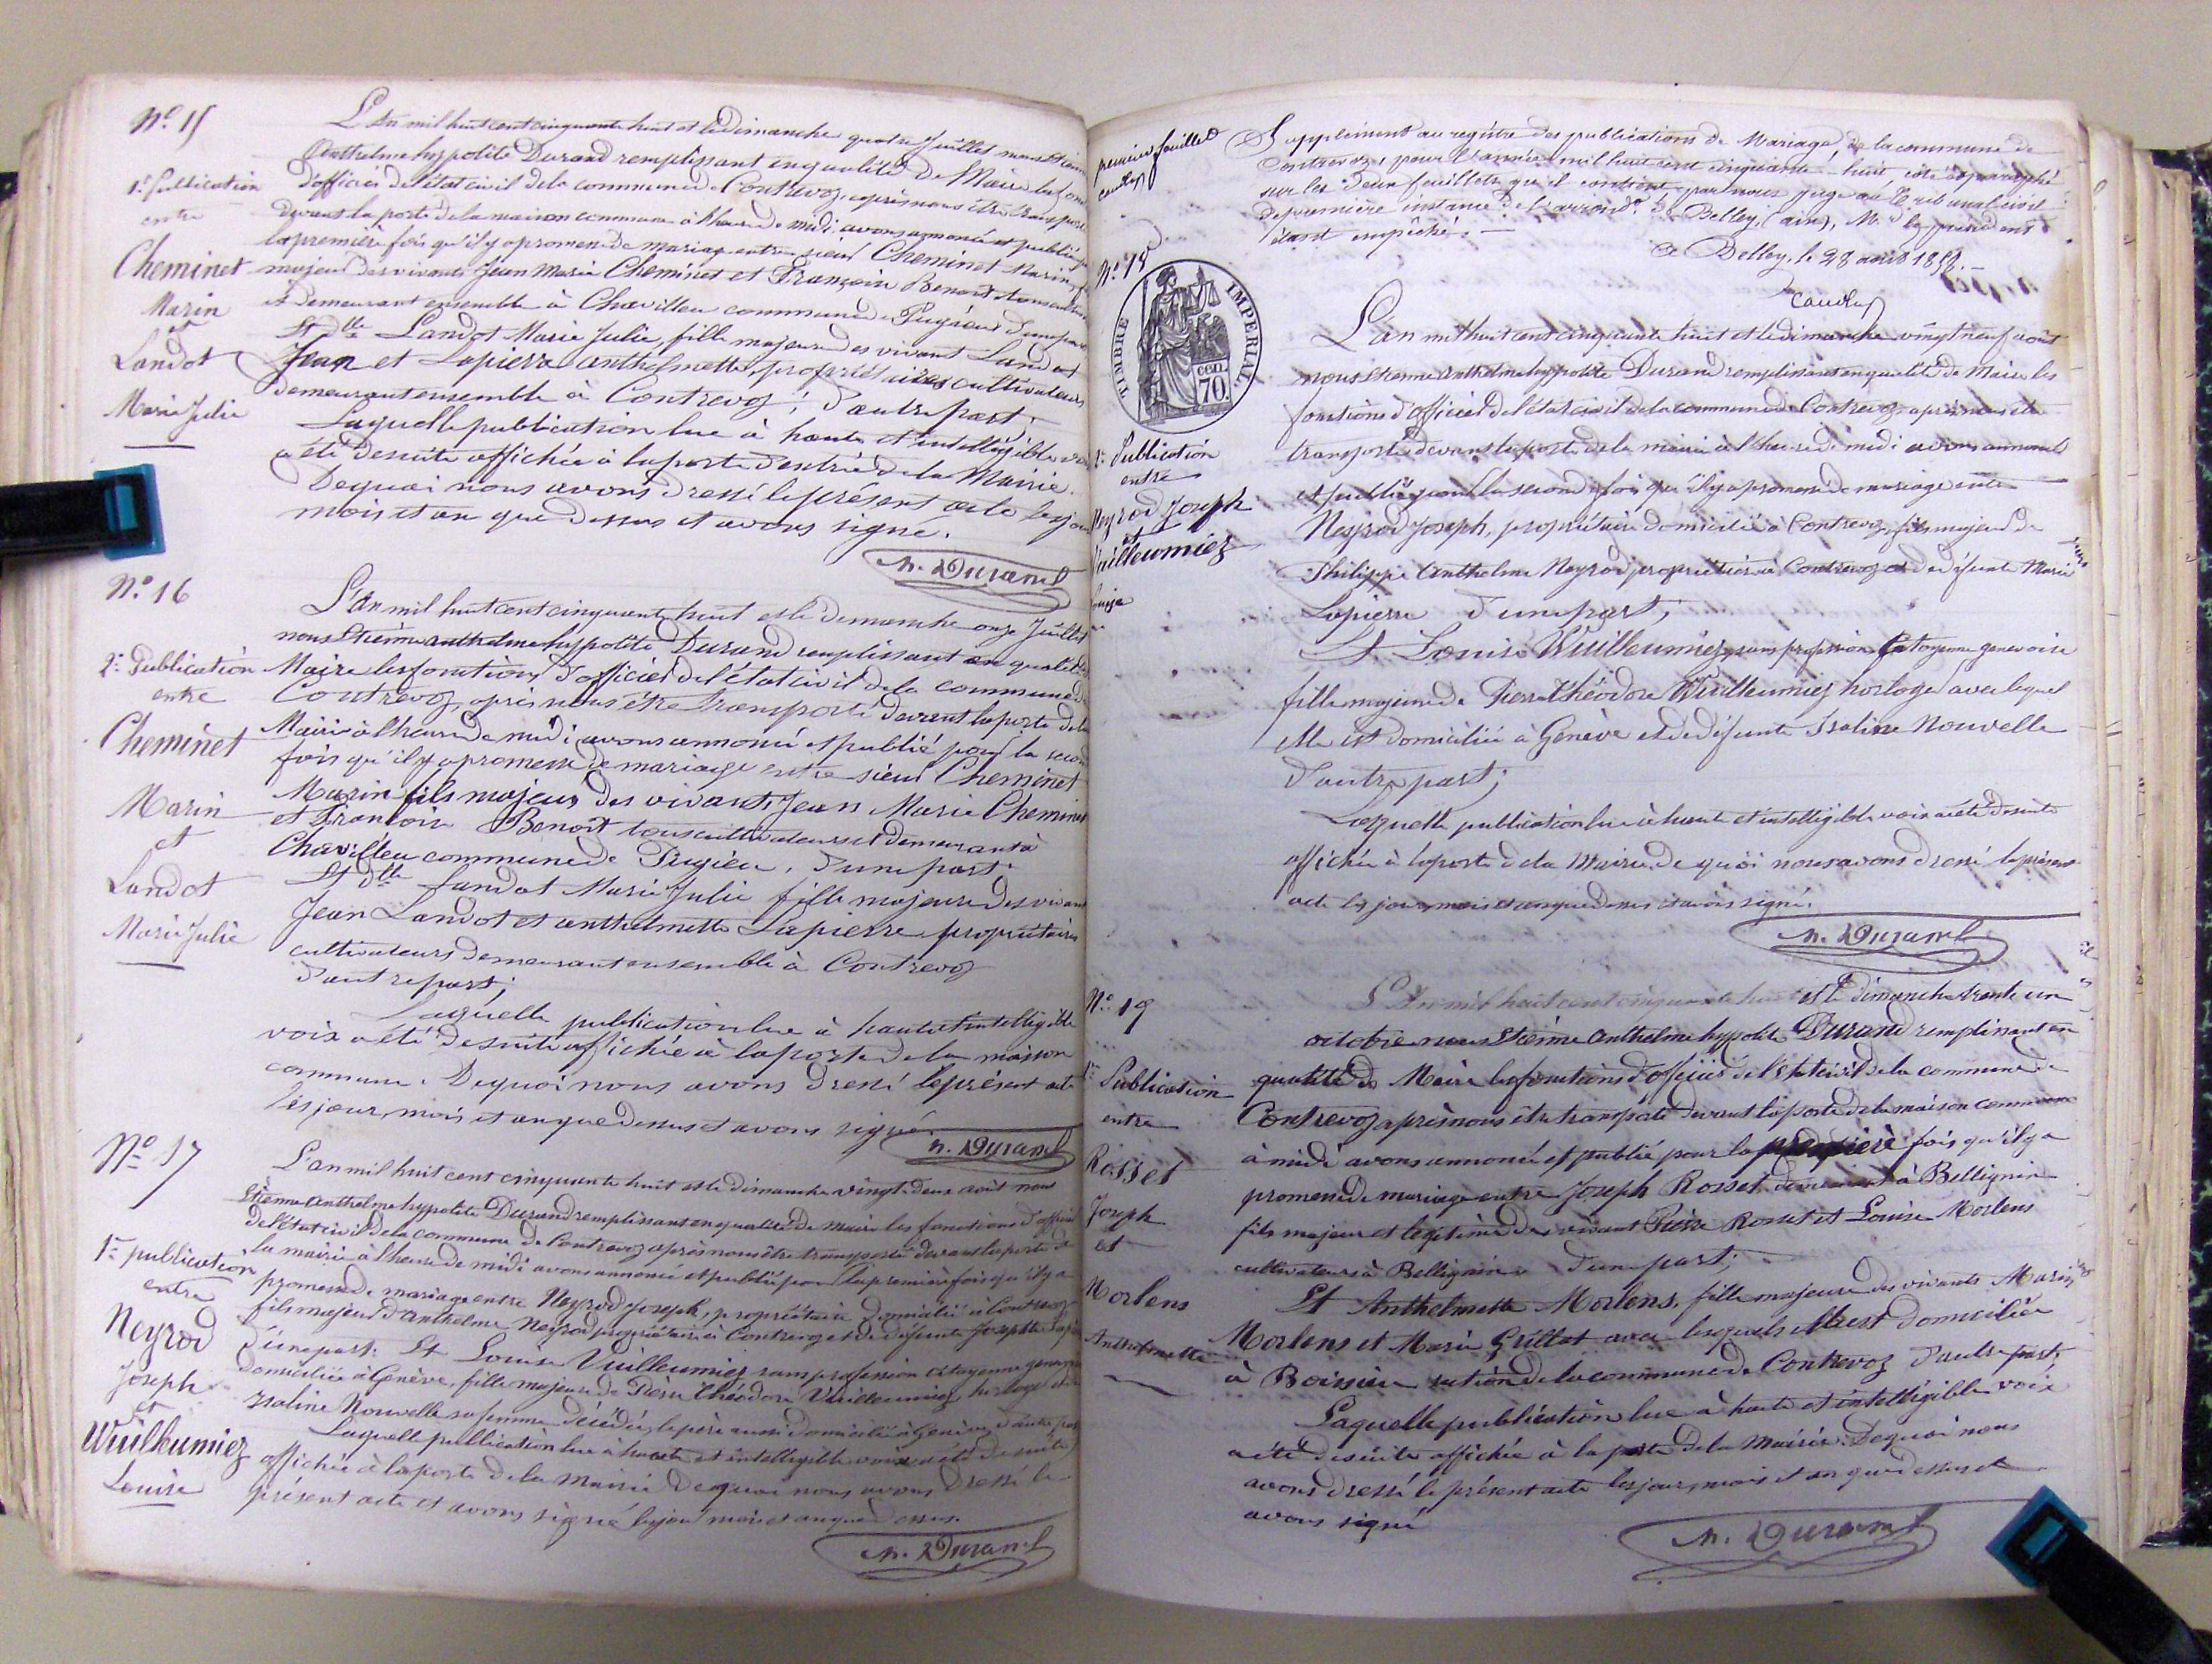 Nº 15
1e publication
entre
Cheminet
Marin
et
Landot
Marie Julie
L'an mil huit cent cinquante huit et le dimanche quatre Juillet nous Etienne
Anthelme hyppolite Durand remplissant en qualité de Maire les fonc
d'officier de l'état civil de la commune de Contrevoz, après nous être transporté
devant la porte de la maison commune à l'heure de midi, avons annoncé et publié
la première fois qu'il y a promesse de mariage entre sieur Cheminet Marin
majeur des vivants Jean Marie Cheminet et Françoise Benoit
et demeurant ensemble à Chavilleu commune de Pugieu d'une part
Et dlle Landot Marie Julie, fille majeure des vivant Landot
Jean et Lapierre Anthelmette, propriétaires cultivateurs
demeurant ensemble à Contrevoz; d'autre part;
Laquelle publication lue à haute et intelligible
a été desuite affichée à la porte d'entrée de la Mairie.
Dequoi nous avons dressé le présent acte les jour
mois et an que dessus et avons signé.
h. Durand
Nº 16
2e Publication
entre
Cheminet
Marin
et
Landot
Marie Julie
L'an mil huit cent cinquante huit et le dimanche onze Juillet
nous Etienne anthelme hyppolite Durand remplissant en qualité de
Maire les fonctions d'officier de l'état civil de la commune de
Contrevoz, après nous être transporté devant la porte de la
Mairie à l'heure de midi, avons annoncé et publié pour la secon
fois qu'il y a promesse de mariage entre sieur Cheminet
Marin fils majeur des vivants Jean Marie Chemin
et Françoise Benoit tous cultivateurs et demeurant à
Chavilleu commune de Pugieu, d'une part.
Et dlle Landot Marie Julie fille majeure des vivant
Jean Landot et anthelmette Lapierre propriétaires
cultivateurs demeurant ensemble à Contrevoz
d'autre part;
Laquelle publication lue à haute et intelligible
voix a été desuite affichée à la porte de la maison
commune. Dequoi nous avons dressé le présent acte
les jour, mois et an que dessus et avons signé.
h. Durand
Nº 17
1re publication
entre
Neyrod
Joseph
et
Wuilleumiez
Louise
L'an mil huit cent cinquante huit et le dimanche vingt deux août nous
Etienne anthelme hyppolite Durand remplissant en qualité de maire les fonctions d'officier
de l'état civil de la commune de Contrevoz après nous être transporté devant la porte de
la mairie à l'heure de midi avons annoncé et publié pour la première fois qu'il y a
promesse de mariage entre Neyrod Joseph, propriétaire domicilié à Contrevoz
fils majeur d'Anthelme Neyrod propriétaire à Contrevoz et de défunte Josephte
d'une part: Et Louise Vuilleumiez sans profession citoyenne genevoise
domiciliée à Genève, fille majeure de Pierre Théodore Vuilleumiez horloger
Isaline Nouvelle sa femme décédée, le père aussi domicilié à Genève d'autre part
Laquelle publication lue à haute et intelligible voix a été desuite
affichée à la porte de la Mairie Dequoi nous avons dressé le
présent acte et avons signé les jour mois et an que dessus.
h. Durand
premier feuillet
Supplément au registre des publications de Mariage, de la commune de
Contrevoz, pour l'année mil huit cent cinquante-huit, coté et paraphé
sur les deux feuillets qu'il contient par nous juge au Tribunal civil
de première instance de l'arrondt de Belley, (ain), M. le président
étant empêché. —
A Belley, le 28 août 1858. —
Nº 18
TIMBRE IMPERIAL
cen
70.
2e Publication
entre
Neyrod Joseph
et
Vuilleumiez
Louise
L'an mil huit cent cinquante huit et le dimanche vingt neuf août
nous Etienne Anthelme hyppolite Durand remplissant en qualité de Maire les
fonctions d'officier de l'état civil de la commune de Contrevoz, après nous être
transporté devant la porte de la mairie à l'heure de midi avons annoncé
et publié pour la seconde fois qu'il y a promesse de mariage entre
Neyrod Joseph, propriétaire domicilié à Contrevoz, fils majeur de
Philippe Anthelme Neyrod propriétaire à Contrevoz et de défunte Marie
Lapierre d'une part;
Et Louise Wuilleumiez, sans profession citoyenne genevoise
fille majeure de Pierre Théodore Wuilleumiez horloger avec lequel
elle est domiciliée à Genève et de défunte Isaline Nouvelle
d'autre part;
Laquelle publication lue à haute et intelligible voix a été desuite
affichée à la porte de la Mairie. De quoi nous avons dressé le présent
acte les jour, mois et an que dessus et avons signé.
h. Durand
Nº 19
1re Publication
entre
Rosset
Joseph
et
Morlens
Anthelmette
L'an mil huit cent cinquante huit et le dimanche trente un
octobre nous Etienne Anthelme hyppolite Durand remplissant en
qualité de Maire les fonctions d'officier de l'état civil de la commune de
Contrevoz après nous être transporté devant la porte de la maison commune
à midi avons annoncé et publié pour la première fois qu'il y a
promesse de mariage entre Joseph Rosset demeurant à Bellignin
fils majeur et légitime des vivant Pierre Rosset et Louise Morlens
cultivateurs à Bellignin, d'une part;
Et Anthelmette Morlens, fille majeure des vivants Marin
Morlens et Marie Grillot avec lesquels elle est domiciliée
à Boissieu section de la commune de Contrevoz d'autre part;
Laquelle publication lue à haute et intelligible voix
a été desuite affichée à la porte de la Mairie. Dequoi nous
avons dressé le présent acte les jour, mois et an que dessus et
avons signé
h. Durand